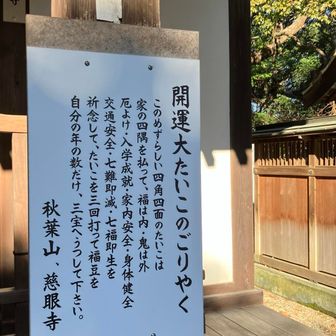 開運大たいこのごりやく
このめずらしい四角四面のたいこは
家の四隅を払って、福は内・鬼は外
厄よけ・入学成就・家内安全・身体健全
交通安全・七難即滅・七福即生を
祈念して、たいこを三回打って福豆を
自分の年の数だけ、三宝へうつして下さい。
秋葉山、慈眼寺